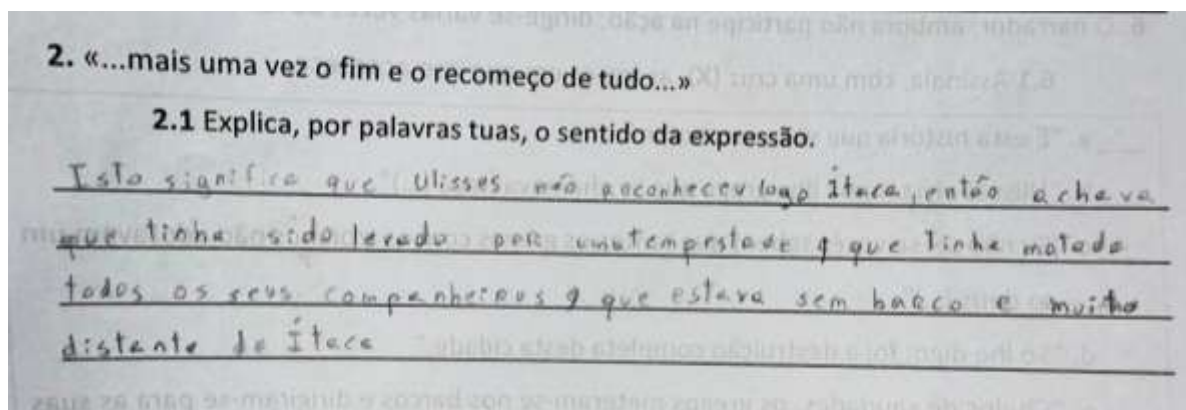 2. «...mais uma vez o fim e o recomeço de tudo...»
2.1 Explica, por palavras tuas, o sentido da expressão.
Isto significa que Ulisses não reconheceu logo Ítaca, então achava
que tinha sido levado por uma tempestade que tinha matado
todos os seus companheiros que estava sem barco e muito
distante de Ítaca